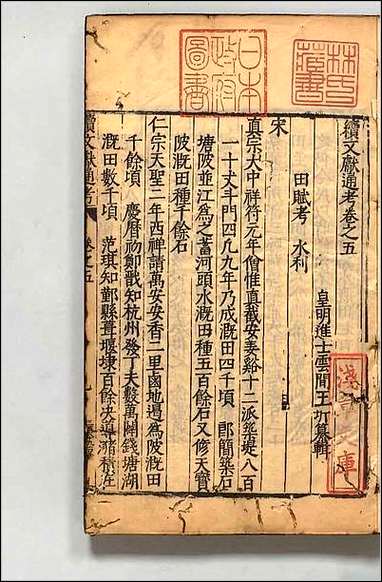 日本
政府
圖書
林氏
藏書
淺草文庫
續文獻通考卷之五
皇明進士雲間王圻纂輯
田賦考 水利
宋
真宗大中祥符元年僧惟真截安姜谿十二派築堤八百
一十丈斗門四凡九年乃成溉田四千頃 郎簡築石
塘陂並江為之蓄河頭水溉田種五百餘石又修天寶
陂溉田種千餘石
仁宗天聖二年西禪請萬安安香二里國地過為陂溉田
千餘頃 慶曆初鄭戩知杭州發丁夫數萬闢錢塘湖
溉田數千頃 范琪知鄞縣葺堰埭百餘決導瀦積左
續文獻通考
卷之五